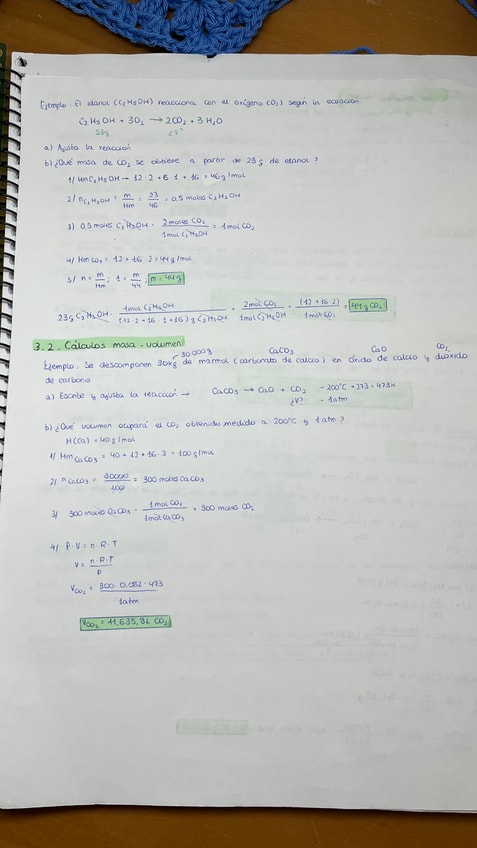 Ejemplo: El etanol (C₂H₅OH) reacciona con el oxígeno (O₂) según la ecuación
C₂H₅OH + 3O₂ → 2CO₂ + 3H₂O
23g ¿g?
a) Ajusta la reacción
b) ¿Qué masa de CO₂ se obtiene a partir de 23g de etanol?
1/ Mm C₂H₅OH → 12·2 + 6·1 + 16 = 46g/mol
2/ n C₂H₅OH = m/Mm = 23/46 = 0,5 moles C₂H₅OH
3) 0,5 moles C₂H₅OH · 2 moles CO₂/1 mol C₂H₅OH = 1 mol CO₂
4/ Mm CO₂ = 12 + 16·2 = 44g/mol
5/ n = m/Mm; 1 = m/44; m = 44g
23g C₂H₅OH · 1mol C₂H₅OH/(12·2+16·1+16)g C₂H₅OH · 2mol CO₂/1mol C₂H₅OH · (12+16·2)/1mol CO₂ = 44g CO₂
3.2. Cálculos masa-volumen
30.000g CaCO₃ CaO CO₂
Ejemplo: Se descomponen 30kg de mármol (carbonato de calcio) en óxido de calcio y dióxido
de carbono
a) Escribe y ajusta la reacción → CaCO₃ → CaO + CO₂ - 200°C + 273 = 473K
¿V? - 1atm
b) ¿Qué volumen ocupará el CO₂ obtenido medido a 200°C y 1 atm?
M(Ca) = 40g/mol
1/ Mm CaCO₃ = 40 + 12 + 16·3 = 100g/mol
2/ n CaCO₃ = 30000/100 = 300 moles CaCO₃
3/ 300 moles CaCO₃ · 1mol CO₂/1mol CaCO₃ = 300 moles CO₂
4/ P·V = n·R·T
V = n·R·T/P
V CO₂ = 300·0,082·473/1atm
V CO₂ = 11,635,8L CO₂